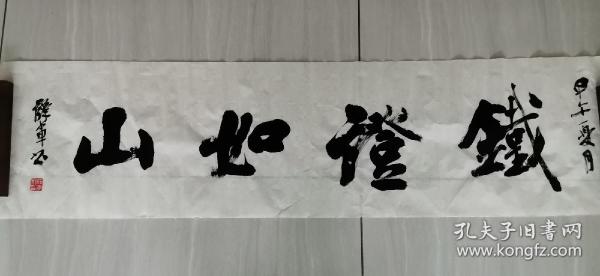 甲午夏月
鐵證如山
孔夫子旧书网
www.kongfz.com